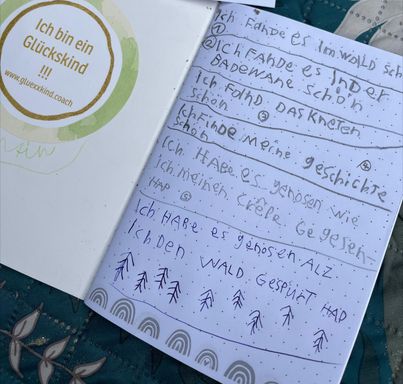 Ich bin ein
Glückskind
!!!
www.gluexxkind.coach
Ich FANDE es Im WALD sch
①
② ICH FANDE es InDer
BADEWANE SCHÖN
Ich FAND DAS KNETEN
schön ③
Ich Finde meine geschichte
schön ④
Ich HABE es genosen wie
ich meinen CREPE Gegesen-
HAD ⑤
Ich HABE es genosen. ALZ
Ich DEN WALD GESPÜRT HAD